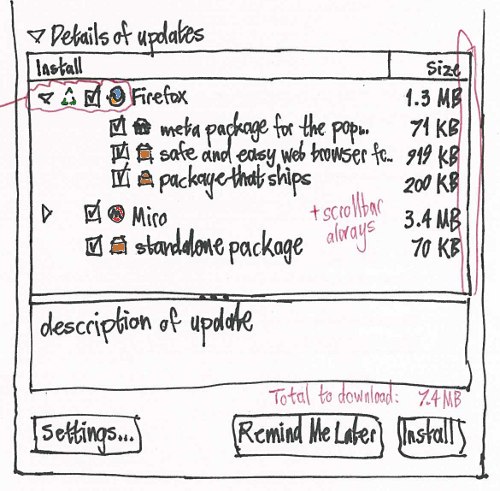 Details of updates
Install Size
Firefox 1.3 MB
meta package for the pop... 71 KB
safe and easy web browser fc.. 919 KB
package that ships 200 KB
Miro 3.4 MB
+ scrollbar always
standalone package 70 KB
description of update
Total to download: 7.4 MB
Settings... Remind Me Later Install